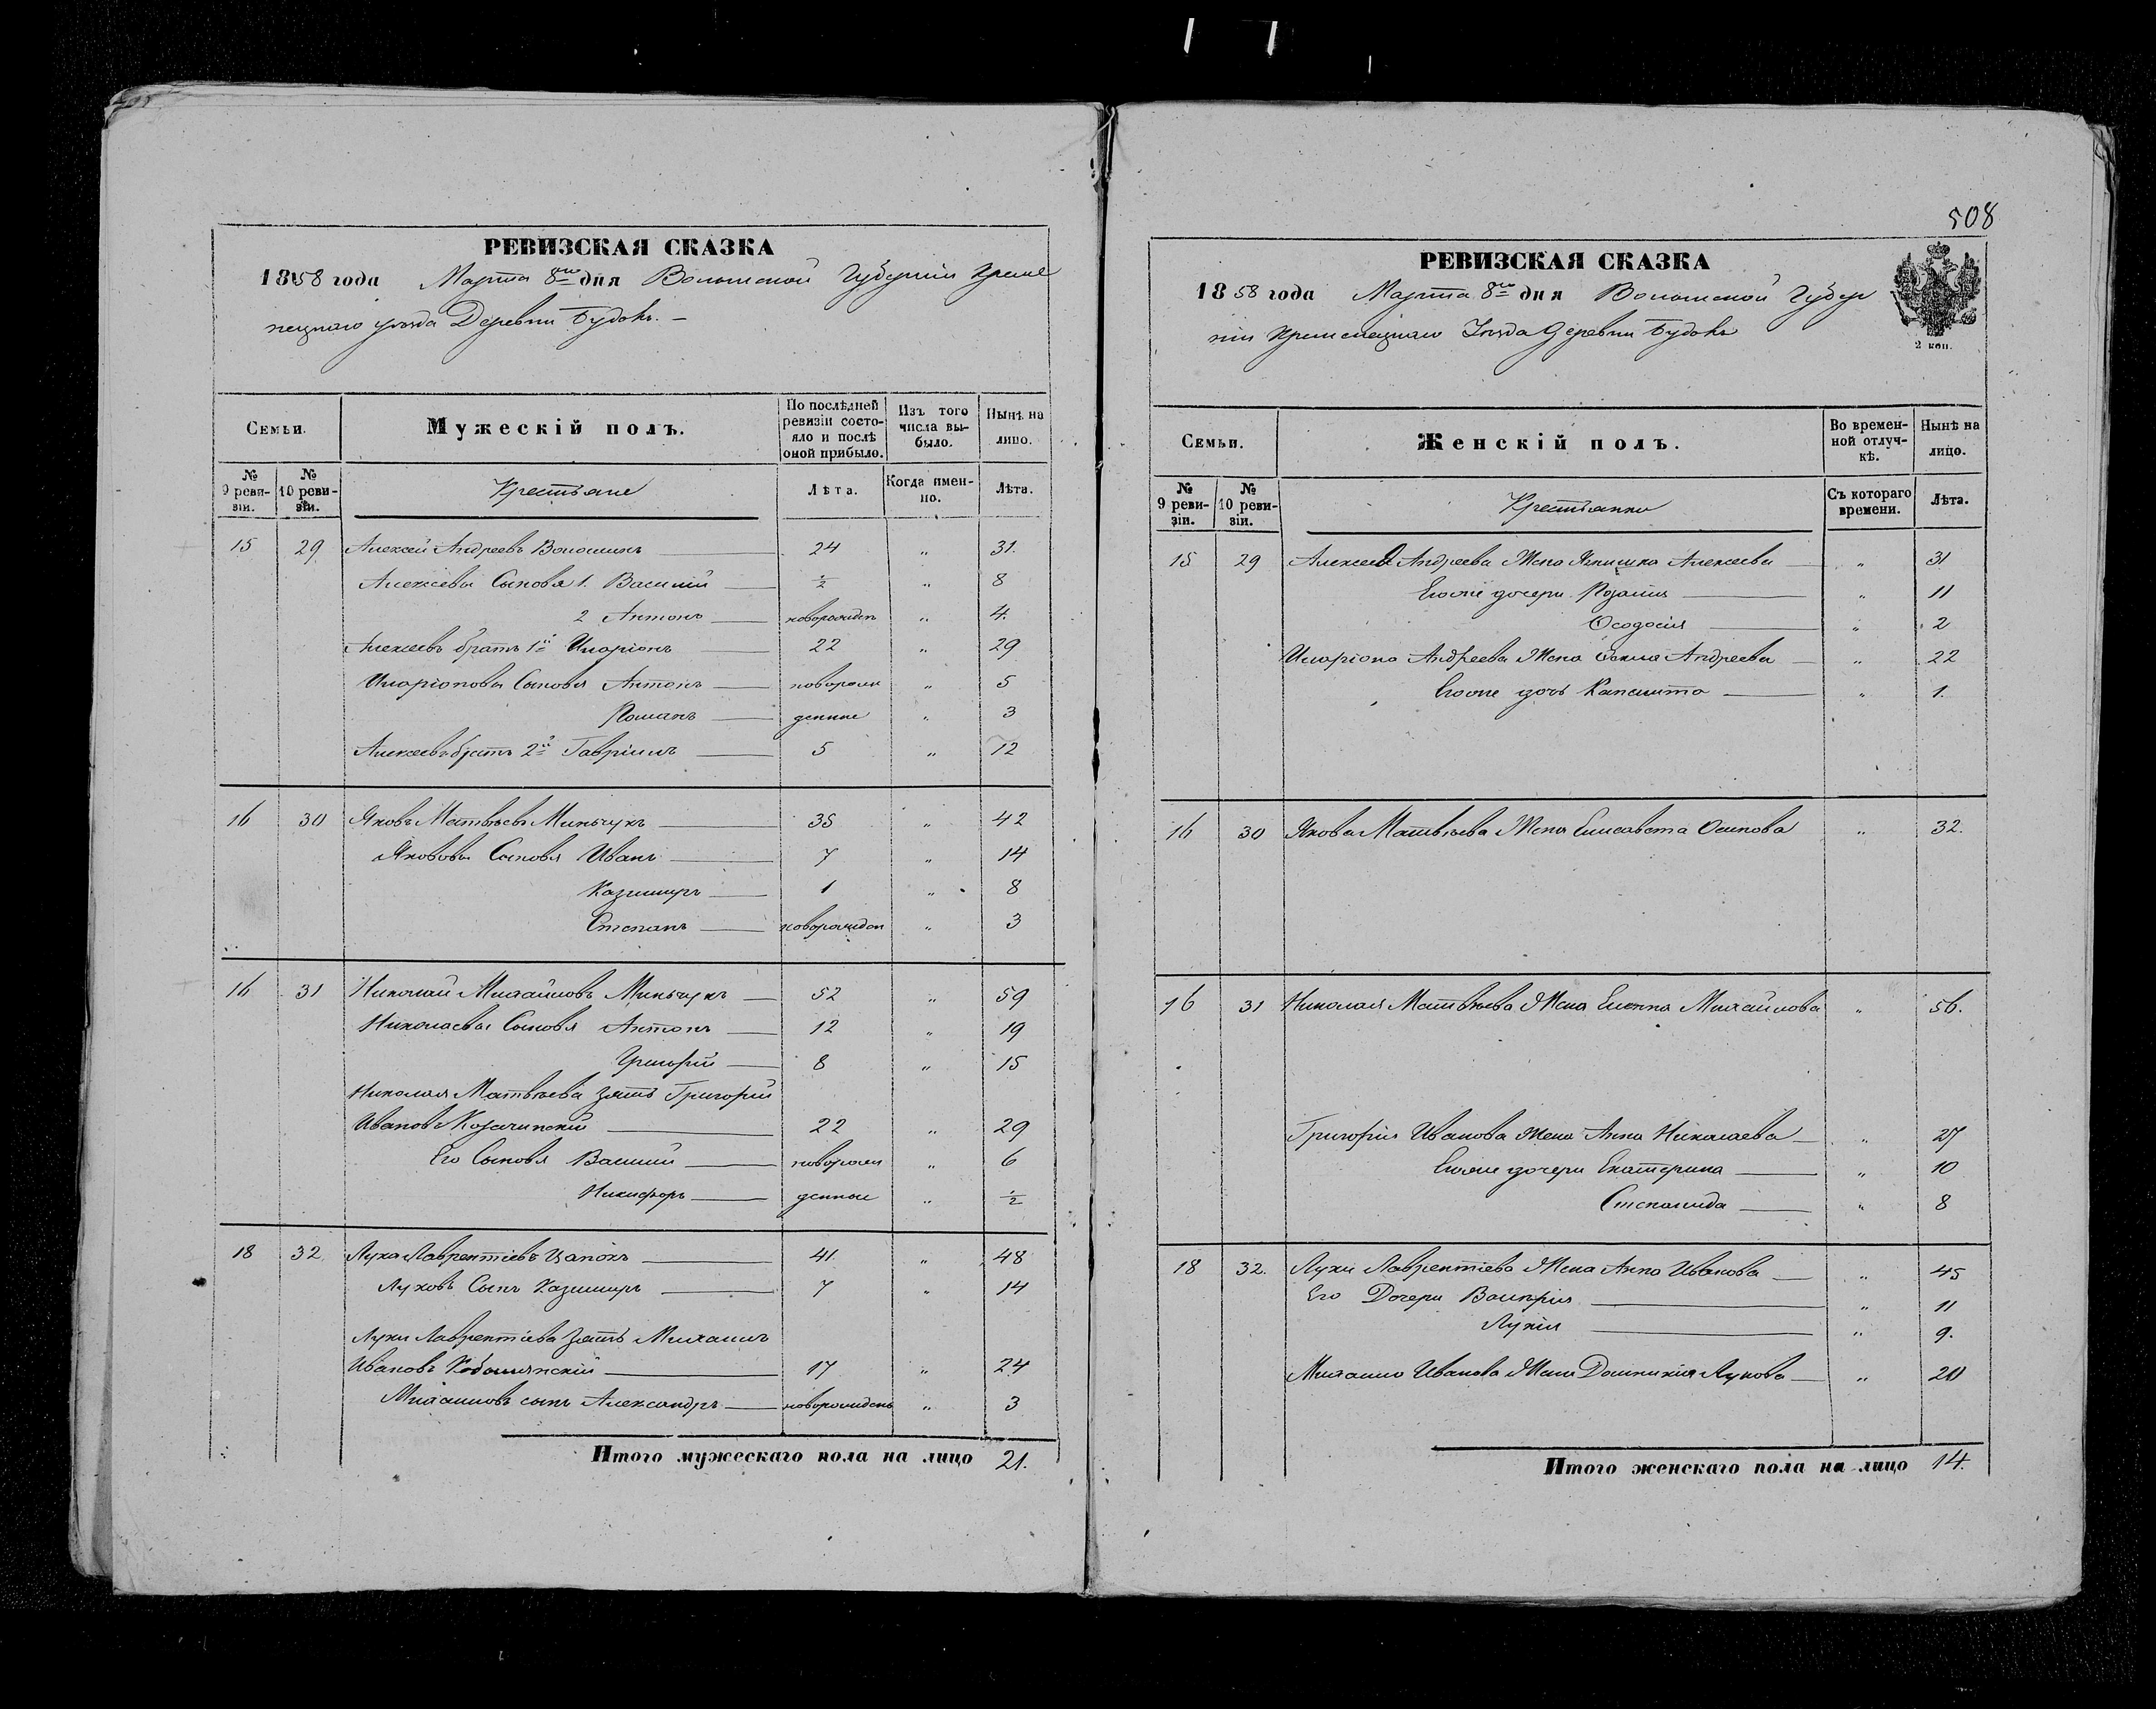 РЕВИЗСКАЯ СКАЗКА
1858 года Марта 8го дня Волынской Губерніи Креме
нецкаго уезда Деревни Будокъ. –
Семьи.
Мужескій полъ.
По послѣдней ревизіи состояло и послѣ оной прибыло.
Изъ того числа выбыло.
Нынѣ на лицо.
№ 9 ревизіи.
№ 10 ревизіи.
Крестьяне
Лѣта.
Когда именно.
Лѣта.
15 29 Алексей Андреевъ Волошинъ 24 „ 31.
Алексѣевы Сыновья 1. Василий ½ „ 8
2 Антонъ новорожден „ 4.
Алексеевъ братъ 1й Иларіонъ 22 „ 29
Иларіоновы Сыновья Антонъ новорож „ 5
Романъ денные „ 3
Алексеевъ братъ 2й Гавріилъ 5 „ 12
16 30 Яковъ Матвѣевъ Миньчукъ 35 „ 42
Яковова Сыновья Иванъ 7 „ 14
Казимиръ 1 „ 8
Степанъ новорожден „ 3
16 31 Николай Михайловъ Миньчукъ 52 „ 59
Николаевы Сыновья Антонъ 12 „ 19
Григорій 8 „ 15
Николая Матвѣева зять Григорій
Ивановъ 22 „ 29
Его Сыновья Василий новорож „ 6
Никифоръ денные „ ½
18 32. Лука Лаврентіевъ Цапокъ 41. „ 48
Луковъ Сынъ Казимиръ 7 „ 14
Луки Лаврентіева зять Михаилъ
Ивановъ 17 „ 24
Михаиловъ сынъ Александръ новорожденъ „ 3
Итого мужескаго пола на лицо 21.
508
РЕВИЗСКАЯ СКАЗКА
1858 года Марта 8го дня Волынской Губер
ніи Кременецкаго Уезда Деревни Будокъ
2 коп.
Семьи.
Женскій полъ.
Во временной отлучкѣ.
Нынѣ на лицо.
№ 9 ревизіи.
№ 10 ревизіи.
Крестьянки
Съ котораго времени.
Лѣта.
15 29 Алексея Андреева Жена Алексеева „ 31
Егоже дочери Розалия „ 11
Феодосія „ 2
Иларіона Андреева Жена Андреева „ 22
Егоже дочь „ 1.
16 30 Якова Матвѣева Жена Елисавета Осипова „ 32.
16 31 Николая Матвѣева Жена Еленна Михайлова „ 56.
Григорія Иванова Жена Анна Николаева „ 27
Егоже дочери Екатерина „ 10
Степанида „ 8
18 32. Луки Лаврентіева Жена Анна Иванова „ 45
Его Дочери „ 11
Лукія „ 9.
Михаила Иванова Жена Домникія Лукова „ 20
Итого женскаго пола на лицо 14.